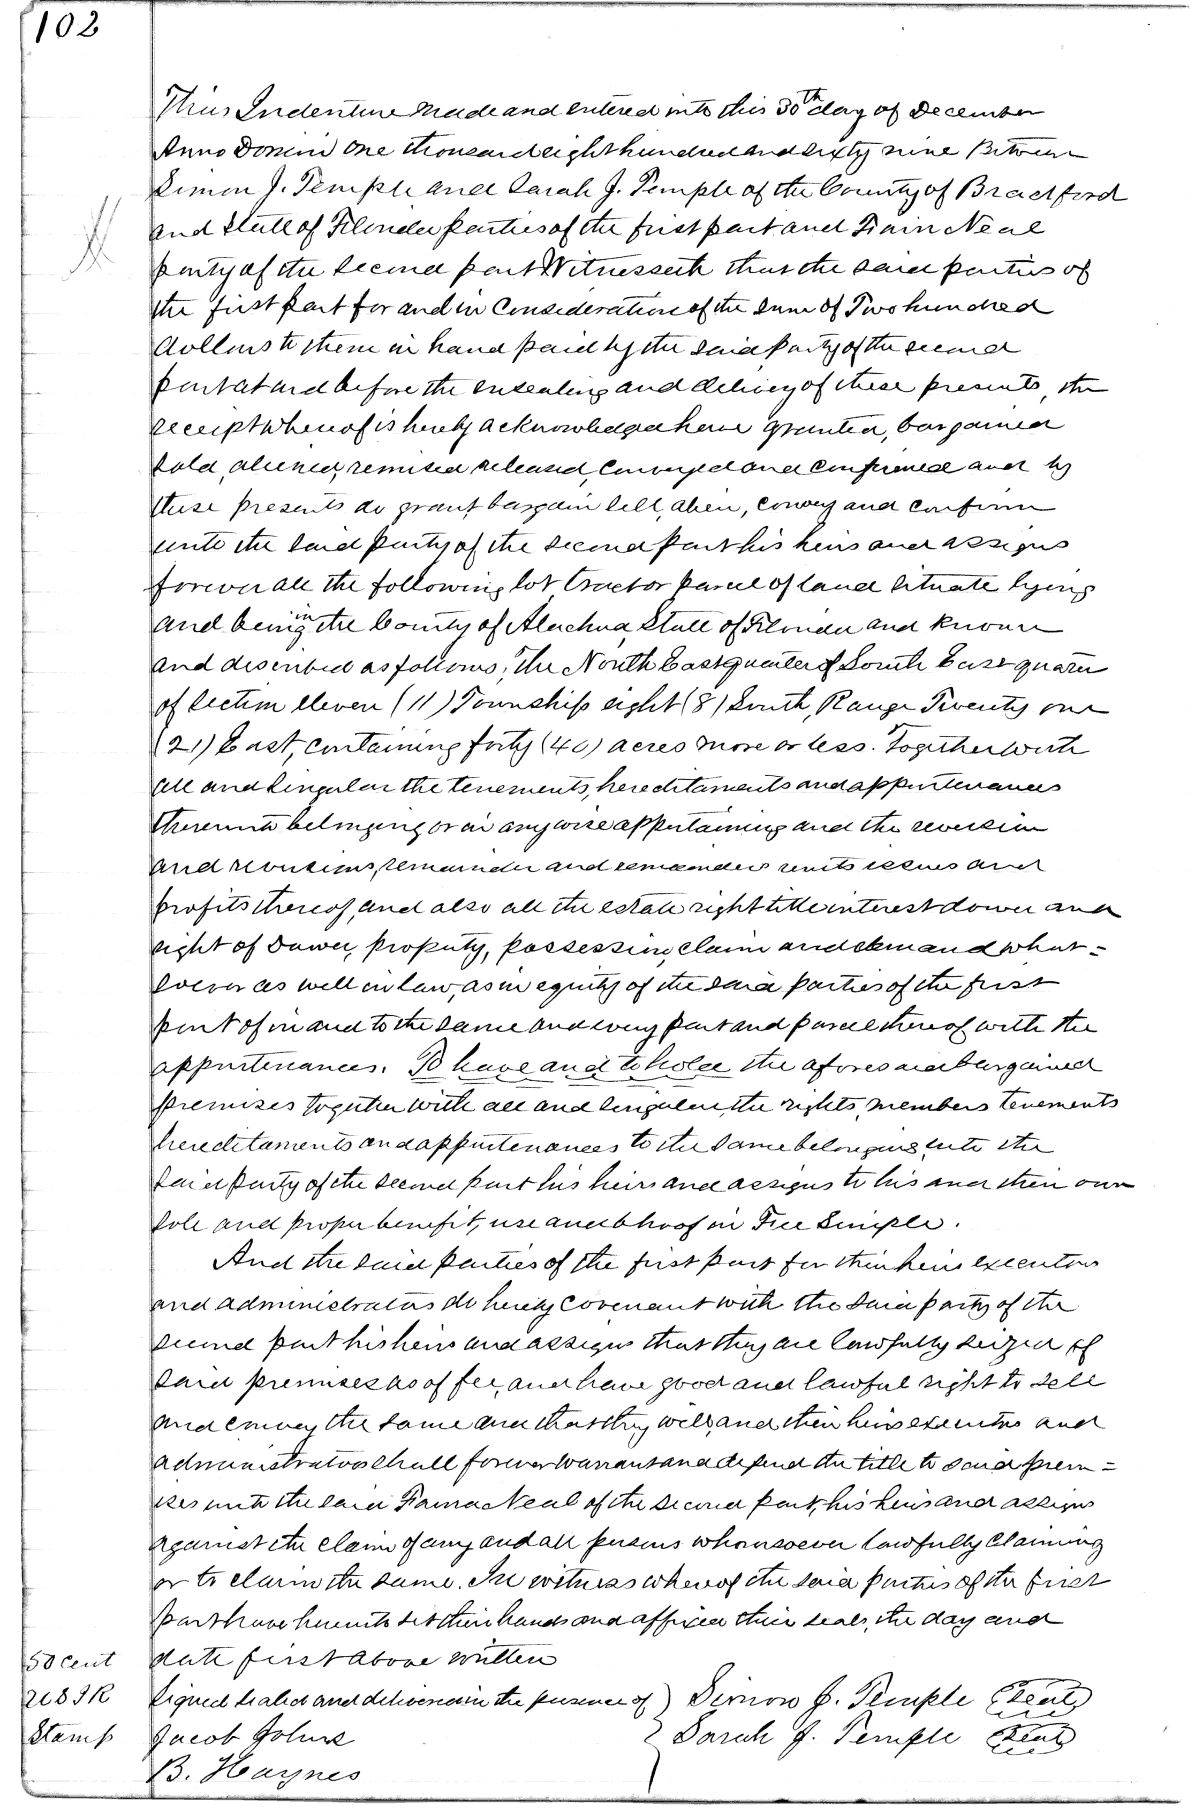 102
This Indenture made and entered into this 30th day of December
Anno Domini One thousand eight hundred and sixty nine Between
Simon J. Temple and Sarah J. Temple of the County of Bradford
and State of Florida parties of the first part and Neal
party of the second part Witnesseth that the said parties of
the first part for and in Consideration of the sum of Two hundred
dollars to them in hand paid by the said party of the second
part at and before the ensealing and delivery of these presents, the
receipt whereof is hereby acknowledged have granted, bargained
sold, aliened, remised released, conveyed and confirmed and by
these presents do grant, bargain sell, alien, convey and confirm
unto the said party of the second part his heirs and assigns
forever all the following lot tract or parcel of land situate lying
and being in the County of Alachua State of Florida and known
and described as follows; The North East quarter of South East quarter
of Section eleven (11) Township eight (8) South, Range Twenty one
(21) East, containing forty (40) acres more or less. Together with
all and singular the tenements, hereditaments and appurtenances
thereunto belonging or in any wise appertaining and the reversion
and reversions, remainder and remainders rents issues and
profits thereof, and also all the estate right title interest dower and
right of Dower, property, possession, claim and demand what=
soever as well in law, as in equity of the said parties of the first
part of in and to the same and every part and parcel thereof with the
appurtenances. To have and to hold the aforesaid bargained
premises together with all and singular, the rights, members tenements
hereditaments and appurtenances to the same belonging, unto the
said party of the second part his heirs and assigns to his and their own
sole and proper benefit, use and behoof in Fee Simple.
And the said parties of the first part for their heirs executors
and administrators do hereby covenant with the said party of the
second part his heirs and assigns that they are lawfully seized of
said premises as of fee, and have good and lawful right to sell
and convey the same and that they will, and their heirs executors and
administrators shall forever warrant and defend the title to said prem=
ises unto the said Neal of the second part, his heirs and assigns
against the claim of any and all persons whomsoever lawfully claiming
or to claim the same. In witness whereof the said parties of the first
part have hereunto set their hands and affixed their seals, the day and
date first above written
50 cent
U S I R
Stamp
Signed sealed and delivered in the presence of) Simon J. Temple (Seal)
Jacob Johns Sarah J. Temple (Seal)
B. Haynes